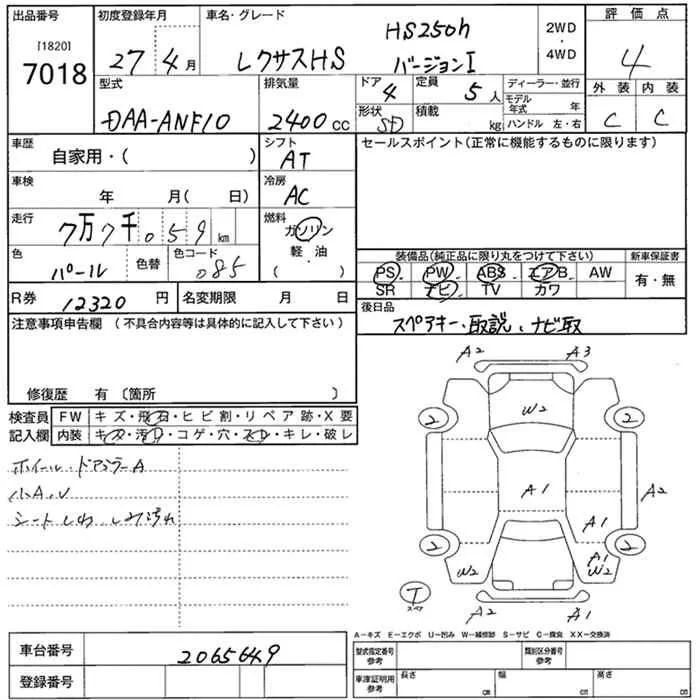 出品番号 初度登録年月 車名・グレード 2WD・4WD 評価点
[1820]
7018
27 4月
レクサスHS HS250h バージョンI
4
型式 排気量 ドア 定員 ディーラー・並行 外装 内装
DAA-ANF10 2400cc 4 5人 モデル年式 年
形状 SD 積載 kg ハンドル 左・右 C C
車歴 自家用・( ) シフト AT セールスポイント(正常に機能するものに限ります)
車検 年 月( 日) 冷房 AC
走行 7万7千059km 燃料 ガソリン
軽・油
( )
色 パール 色替 色コード 085
装備品(純正品に限り丸をつけて下さい) 新車保証書
PS PW ABS エアB AW 有・無
SR ナビ TV カワ
R券 12320円 名変期限 月 日
後日品 スペアキー、取説、ナビ取
注意事項申告欄 (不具合内容等は具体的に記入して下さい)
修復歴 有 〔箇所 〕
検査員 FW キズ・飛石・ヒビ割・リペア跡・X要
記入欄 内装 キズ・汚レ・コゲ・穴・スレ・キレ・破レ
ホイール・ドアミラーA
小A.U
シートしわ しみ汚れ
A2 A3
W2
2 2
A1 A2
A1
2 2
W2 A1 W2
T スペア
A2 A1
A-キズ E-エクボ U-凹み W-補修跡 S-サビ C-腐食 XX-交換済
車台番号 2065649
型式指定番号 参考 類別区分番号 参考
登録番号
車庫証明用 参考 長さ cm 幅 cm 高さ cm